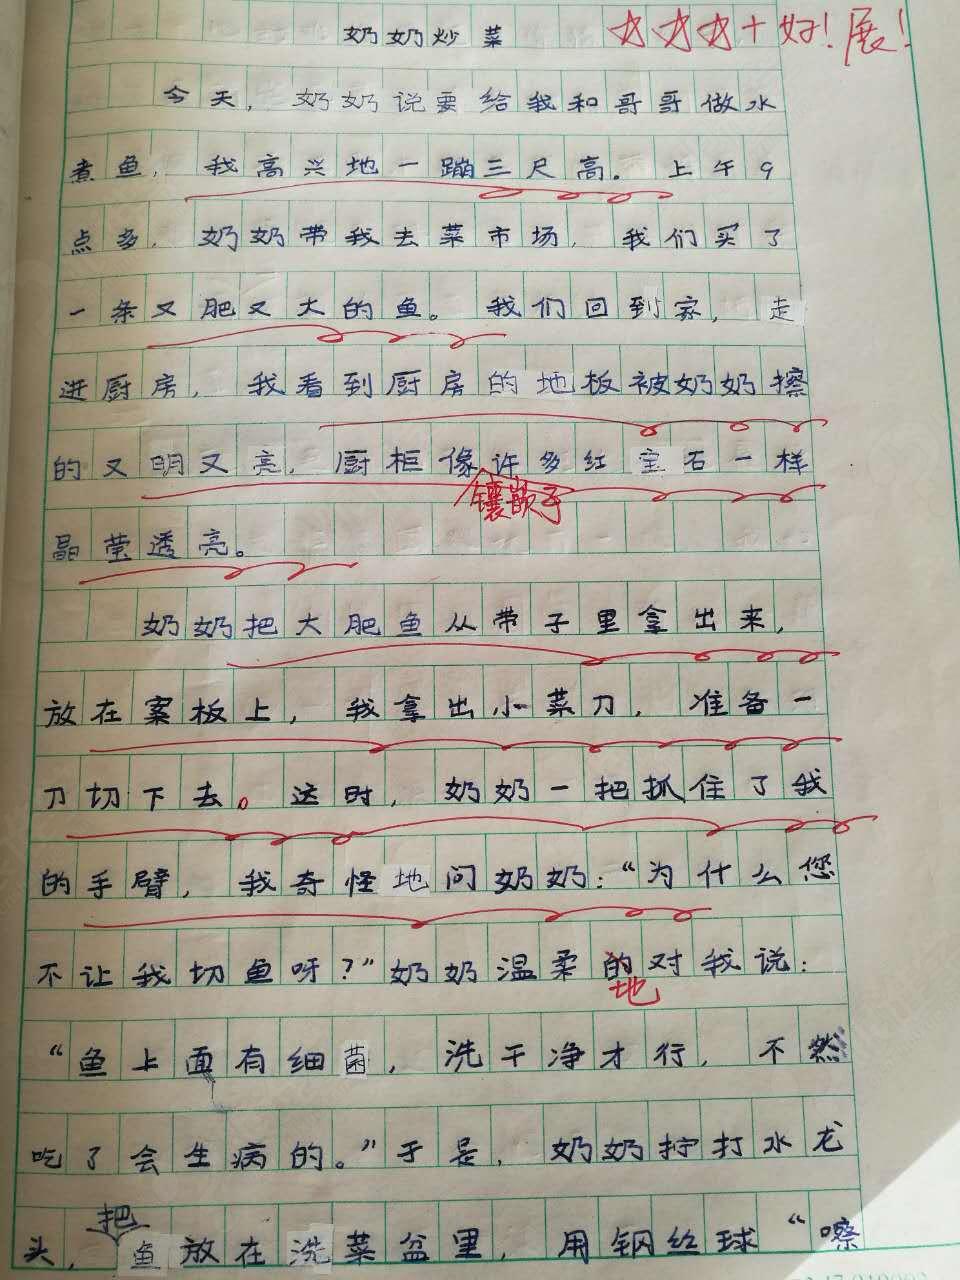 奶奶炒菜 大大大+好！展！
今天，奶奶说要给我和哥哥做水
煮鱼，我高兴地一蹦三尺高。上午9
点多，奶奶带我去菜市场，我们买了
一条又肥又大的鱼。我们回到家，走
进厨房，我看到厨房的地板被奶奶擦
的又明又亮，厨柜像许多红宝石一样
镶嵌了
晶莹透亮。
奶奶把大肥鱼从带子里拿出来，
放在案板上，我拿出小菜刀，准备一
刀切下去。这时，奶奶一把抓住了我
的手臂，我奇怪地问奶奶：“为什么您
不让我切鱼呀？”奶奶温柔的对我说：
地
“鱼上面有细菌，洗干净才行，不然
吃了会生病的。”于是，奶奶拧打水龙
把
头，鱼放在洗菜盆里，用钢丝球“嚓